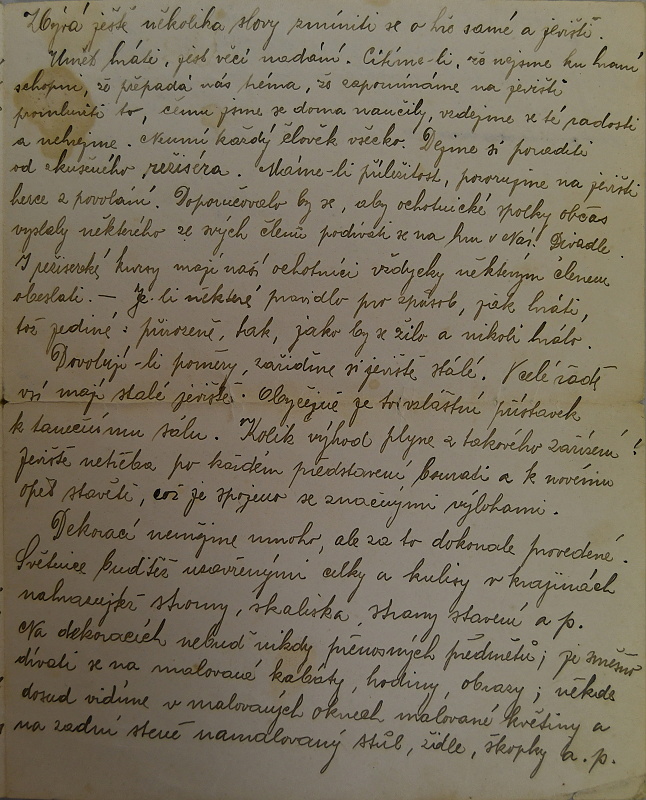 Zbývá ještě několika slovy zmíniti se o hře samé a jevišti.
Uměť hráti, jest věcí nadání. Cítíme-li, že nejsme ku hraní
schopni, že přepadá nás tréma, že zapomínáme na jevišti
promluviti to, čemu jsme se doma naučily, vzdejme se té radosti
a nehrejme. Neumí každý člověk všecko. Dejme si poraditi
od zkušeného režiséra. Máme-li příležitost, pozorujme na jevišti
herce z povolání. Doporučovalo by se, aby ochotnické spolky občas
vyslaly některého ze svých členů podívati se na hru v Nár. Divadle.
I režiserské kursy mají naši ochotníci vždycky některým členem
obeslati. — Je-li některé pravidlo pro způsob, jak hráti,
tož jediné: přirozeně, tak, jako by se žilo a nikoli hrálo.
Dovolují-li poměry, zařídíme si jeviště stálé. V celé řadě
vsí mají stálé jeviště. Obyčejně je to zvláštní přístavek
k tanečnímu sálu. Kolik výhod plyne z takového zařízení!
Jeviště netřeba po každém představení bourati a k novému
opět stavěti, což je spojeno se značnými výlohami.
Dekorací nemějme mnoho, ale za to dokonale provedené.
Světnice buďtež uzavřenými celky a kulisy v krajinách
nahrazujtež stromy, skaliska, strany stavení a p.
Na dekoracích nebuď nikdy přenosných předmětů; je směšno
dívati se na malované kabáty, hodiny, obrazy; někde
dosud vidíme v malovaných oknech malované květiny a
na zadní stěně namalovaný stůl, židle, škopky a. p.